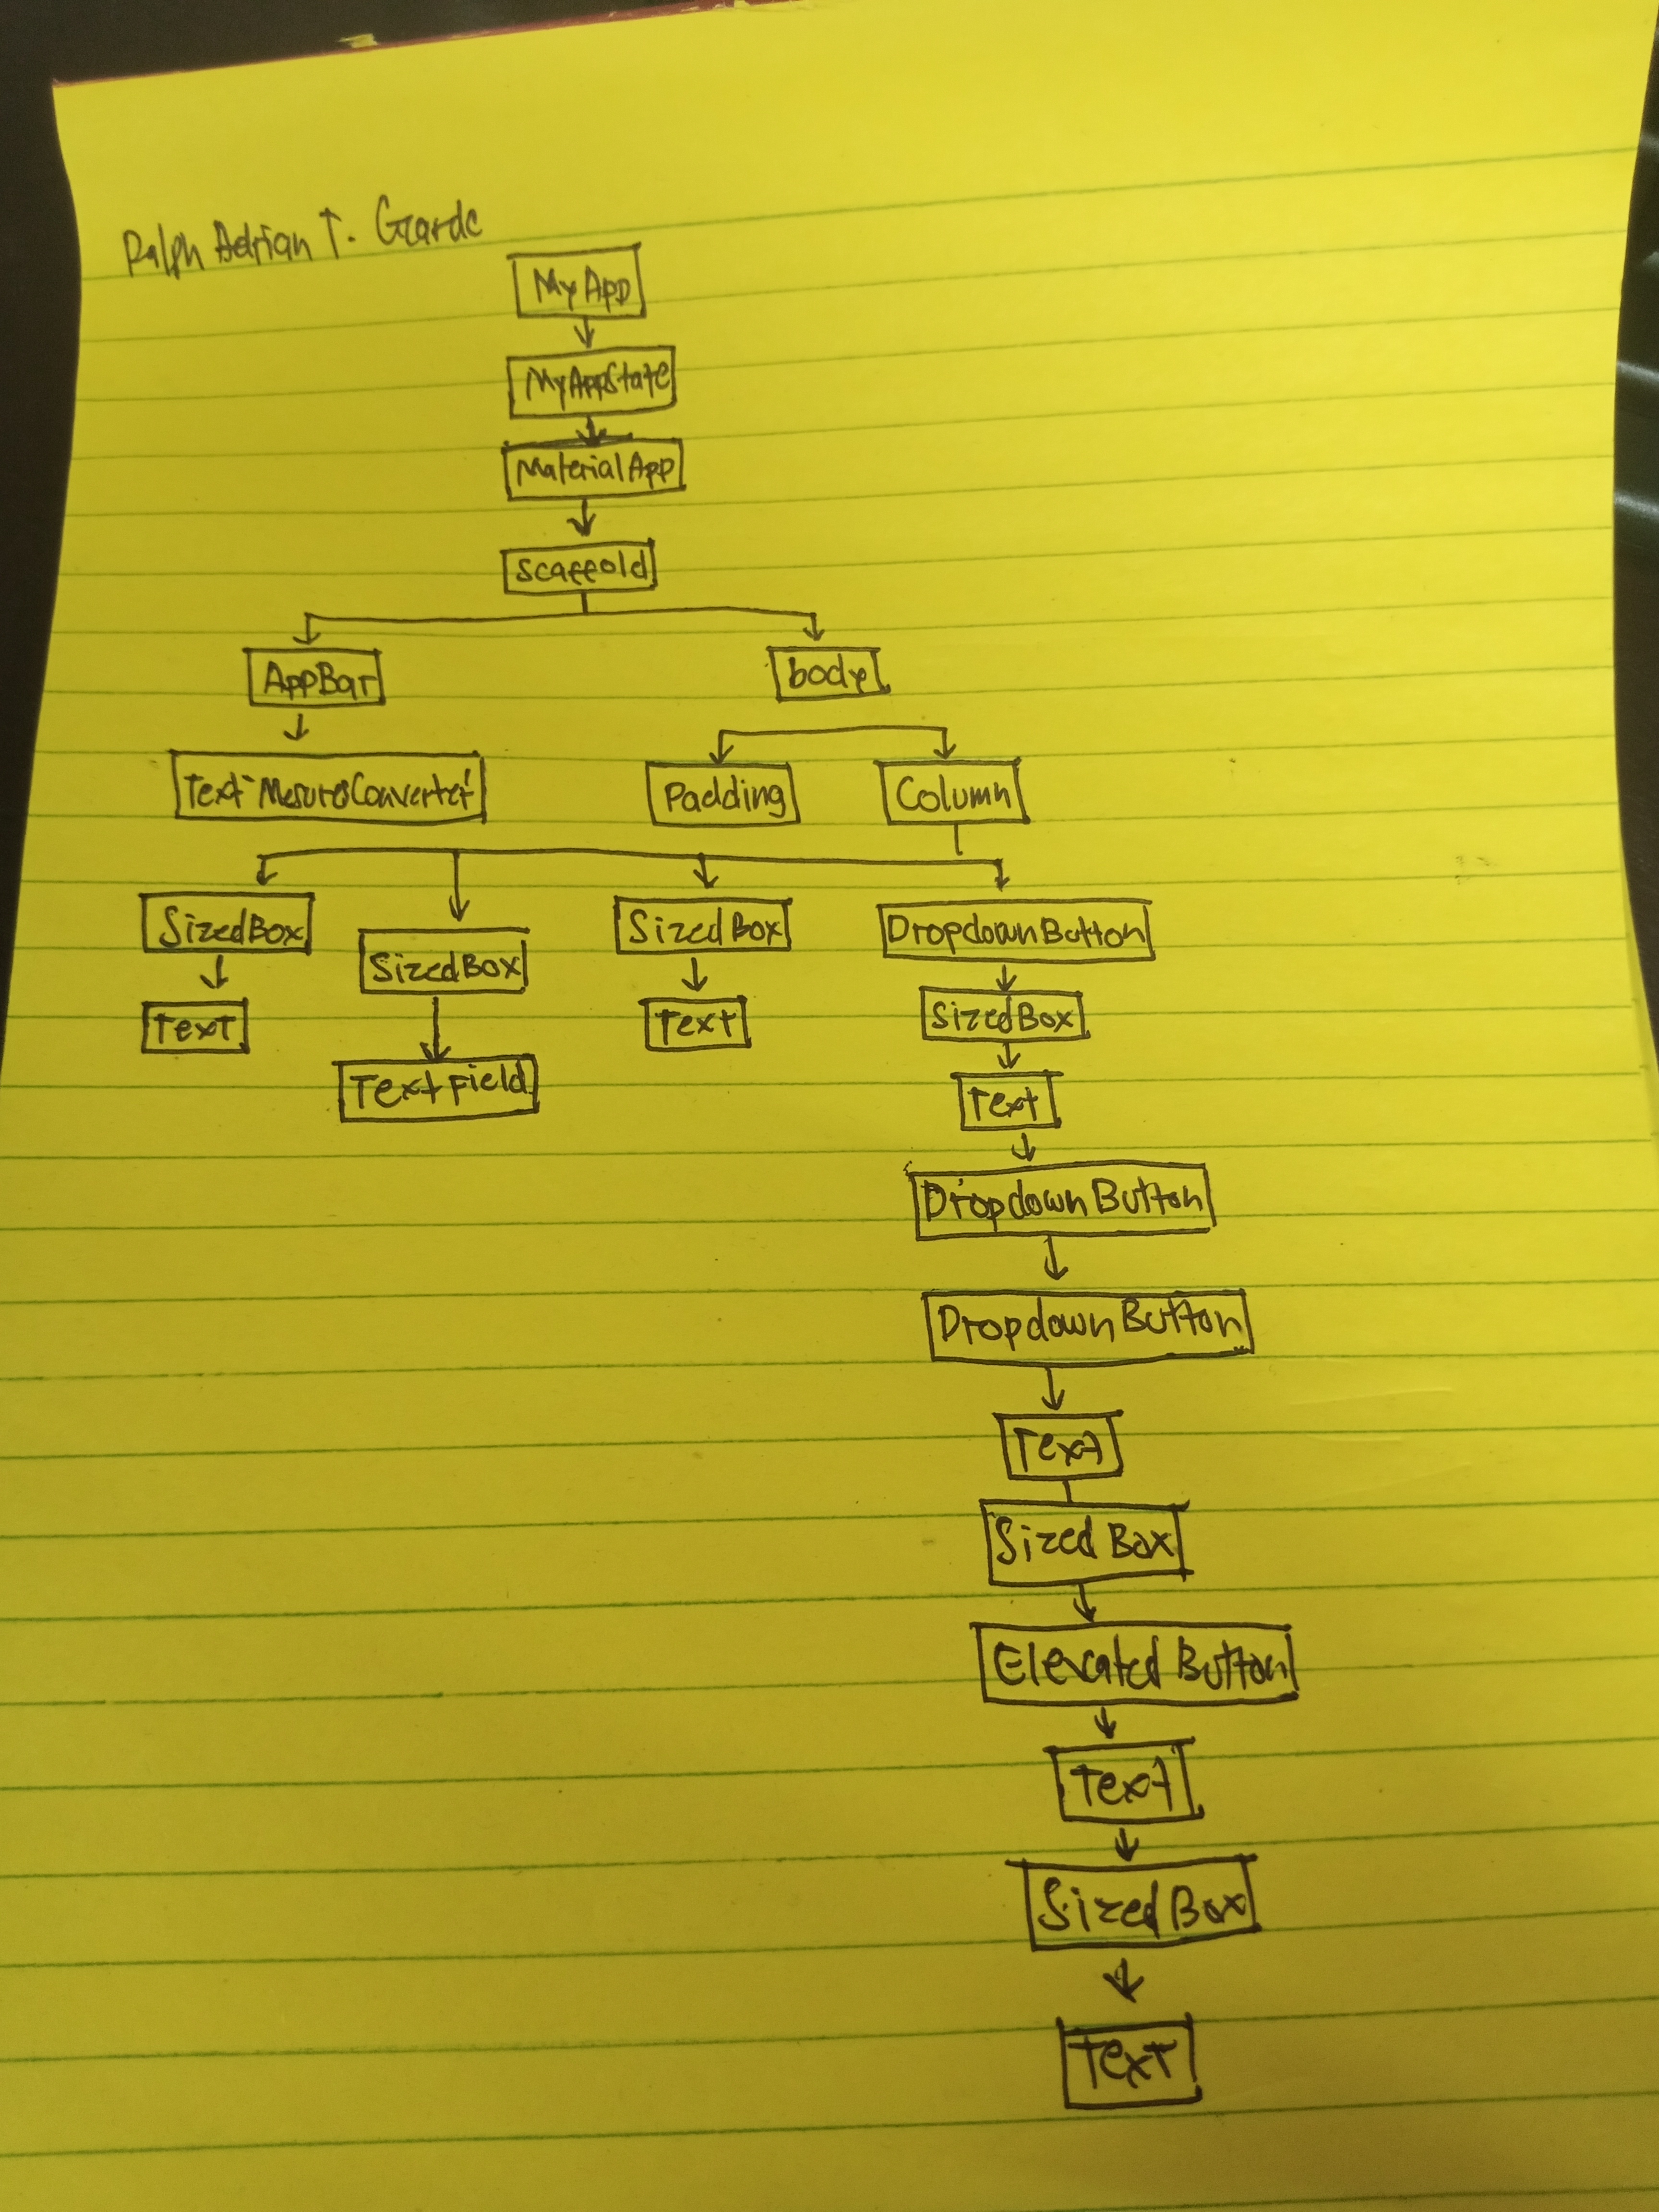 Ralph Adrian T. Garde
MyApp
MyAppState
MaterialApp
Scaffold
AppBar body
Text "MesuresConverter" Padding Column
SizedBox SizedBox SizedBox DropdownButton
Text TextField Text SizedBox
Text
DropdownButton
DropdownButton
Text
SizedBox
Elevated Button
Text
SizedBox
Text